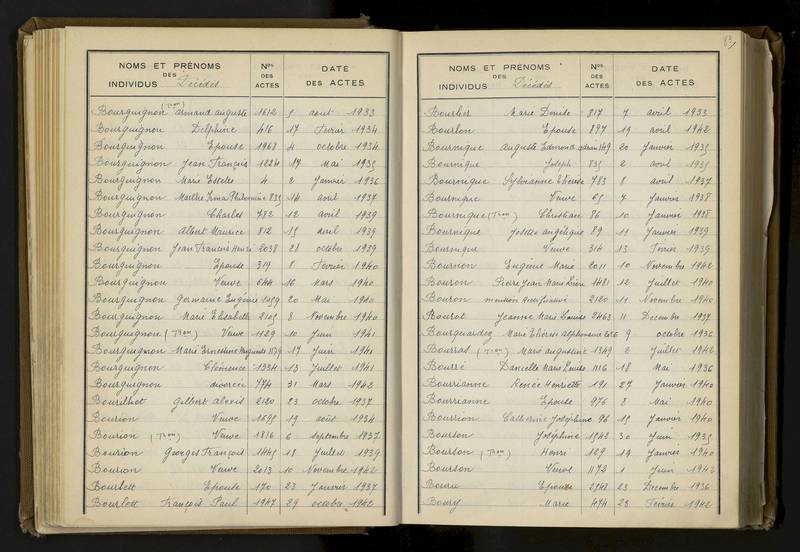 NOMS ET PRÉNOMS
DES
INDIVIDUS Décédés
Nos
DES
ACTES
DATE
DES ACTES
(Tron)
Bourguignon Armand Auguste 1612 5 aout 1933
Bourguignon Delphine 416 17 Février 1934
Bourguignon Epouse 1968 4 octobre 1934
Bourguignon Jean François 1224 17 Mai 1935
Bourguignon Marie Estelle 4 2 Janvier 1936
Bourguignon Marthe Irma Philomine 835 14 avril 1937
Bourguignon Charles 782 12 avril 1939
Bourguignon Albert Maurice 812 15 avril 1939
Bourguignon Jean François Henri 2038 28 octobre 1939
Bourguignon Epouse 319 8 Février 1940
Bourguignon Veuve 644 16 Mars 1940
Bourguignon Germaine Eugénie 1159 20 Mai 1940
Bourguignon Marie Elisabeth 2105 8 Novembre 1940
Bourguignon (Tron) Veuve 1129 10 Juin 1941
Bourguignon Marie Ernestine 1179 17 Juin 1941
Bourguignon Clémence 1334 13 Juillet 1941
Bourguignon divorcée 774 31 Mars 1942
Bourilhot Gilbert Alexis 2120 23 octobre 1937
Bourion Veuve 1695 19 août 1934
Bourion (Tron) Veuve 1816 6 septembre 1937
Bourion Georges François 1445 18 Juillet 1939
Bourion Veuve 2013 10 Novembre 1942
Bourlett Epouse 170 23 Janvier 1937
Bourlett François Paul 1947 29 octobre 1942
83
NOMS ET PRÉNOMS
DES
INDIVIDUS Décédés
Nos
DES
ACTES
DATE
DES ACTES
Bourlier Marie Denise 817 7 avril 1933
Bourlon Epouse 897 19 avril 1942
Bournique Auguste Edmond 149 20 Janvier 1935
Bournique Joseph 835 2 avril 1935
Bournique Sylvianne Thérèse 783 8 avril 1937
Bournique Veuve 65 7 Janvier 1938
Bournique (Tron) Christian 86 10 Janvier 1938
Bournique Josette Angélique 89 11 Janvier 1939
Bournique Veuve 314 13 Février 1939
Bournon Eugène Marie 2011 10 Novembre 1942
Bouron Pierre Jean Marie Léon 1481 12 Juillet 1940
Bouron mention 2120 11 Novembre 1940
Bourot Jeanne Marie Louise 2463 11 Décembre 1937
Bourquardez Marie Thérèse Alphonsine 9 octobre 1936
Bourras (Tron) Marie Augustine 1349 2 Juillet 1942
Bourré Danielle Marie Louise 1116 18 Mai 1936
Bourrianne Renée Henriette 191 27 Janvier 1940
Bourrianne Epouse 976 8 Mai 1940
Bourrion Catherine Joséphine 96 15 Janvier 1940
Bourson Joséphine 1542 30 Juin 1935
Bourson (Tron) Henri 129 19 Janvier 1940
Bourson Veuve 1172 1 Juin 1942
Bouru Epouse 2543 23 Décembre 1936
Boury Marie 474 28 Février 1942